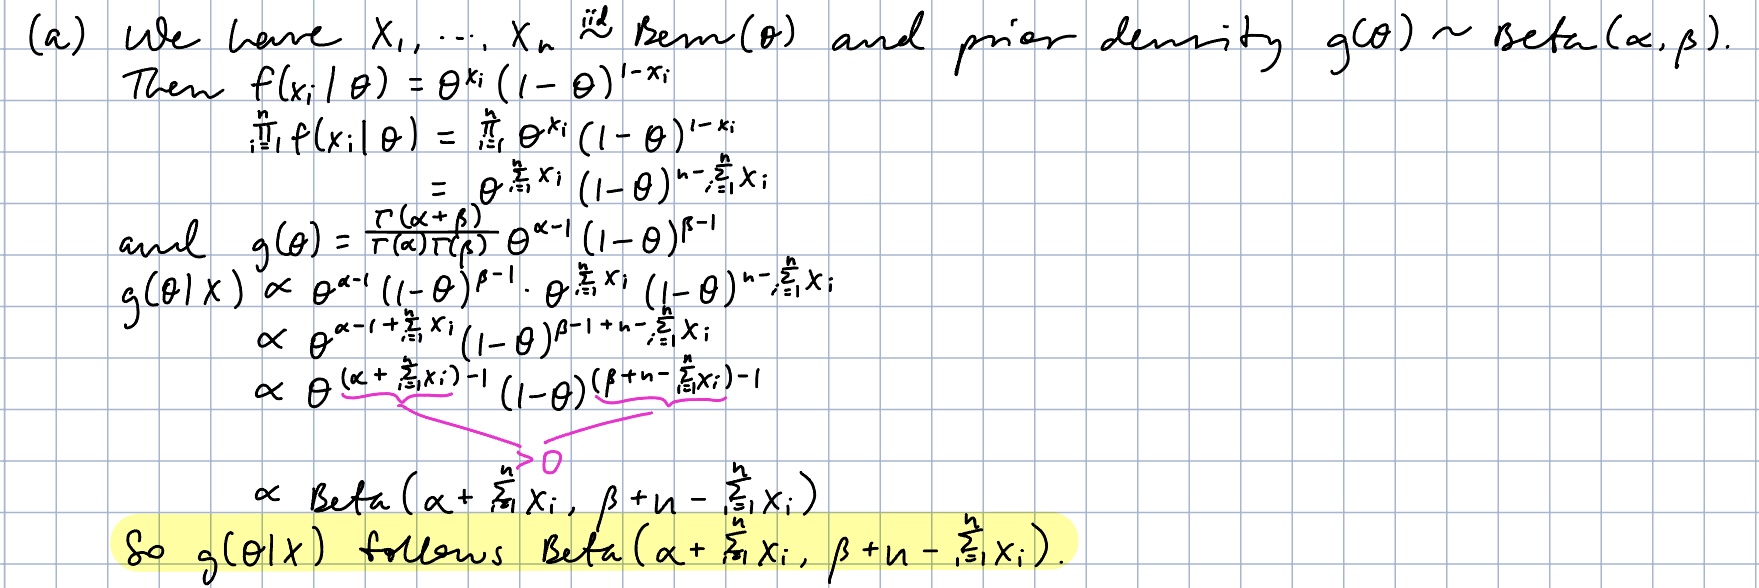 (a) We have X₁, ..., Xₙ iid~ Bern(θ) and prior density g(θ) ~ Beta(α, β).
Then f(xᵢ | θ) = θ^{xᵢ} (1 - θ)^{1-xᵢ}
∏_{i=1}^{n} f(xᵢ | θ) = ∏_{i=1}^{n} θ^{xᵢ} (1 - θ)^{1-xᵢ}
= θ^{∑_{i=1}^{n} xᵢ} (1-θ)^{n-∑_{i=1}^{n} xᵢ}
and g(θ) = Γ(α+β)/Γ(α)Γ(β) θ^{α-1} (1-θ)^{β-1}
g(θ|X) ∝ θ^{α-1} (1-θ)^{β-1} · θ^{∑_{i=1}^{n} xᵢ} (1-θ)^{n-∑_{i=1}^{n} xᵢ}
∝ θ^{α-1+∑_{i=1}^{n} xᵢ} (1-θ)^{β-1+n-∑_{i=1}^{n} xᵢ}
∝ θ^{(α+∑_{i=1}^{n} xᵢ)-1} (1-θ)^{(β+n-∑_{i=1}^{n} xᵢ)-1}
>0
∝ Beta(α+∑_{i=1}^{n} xᵢ, β+n-∑_{i=1}^{n} xᵢ)
So g(θ|X) follows Beta(α+∑_{i=1}^{n} xᵢ, β+n-∑_{i=1}^{n} xᵢ).